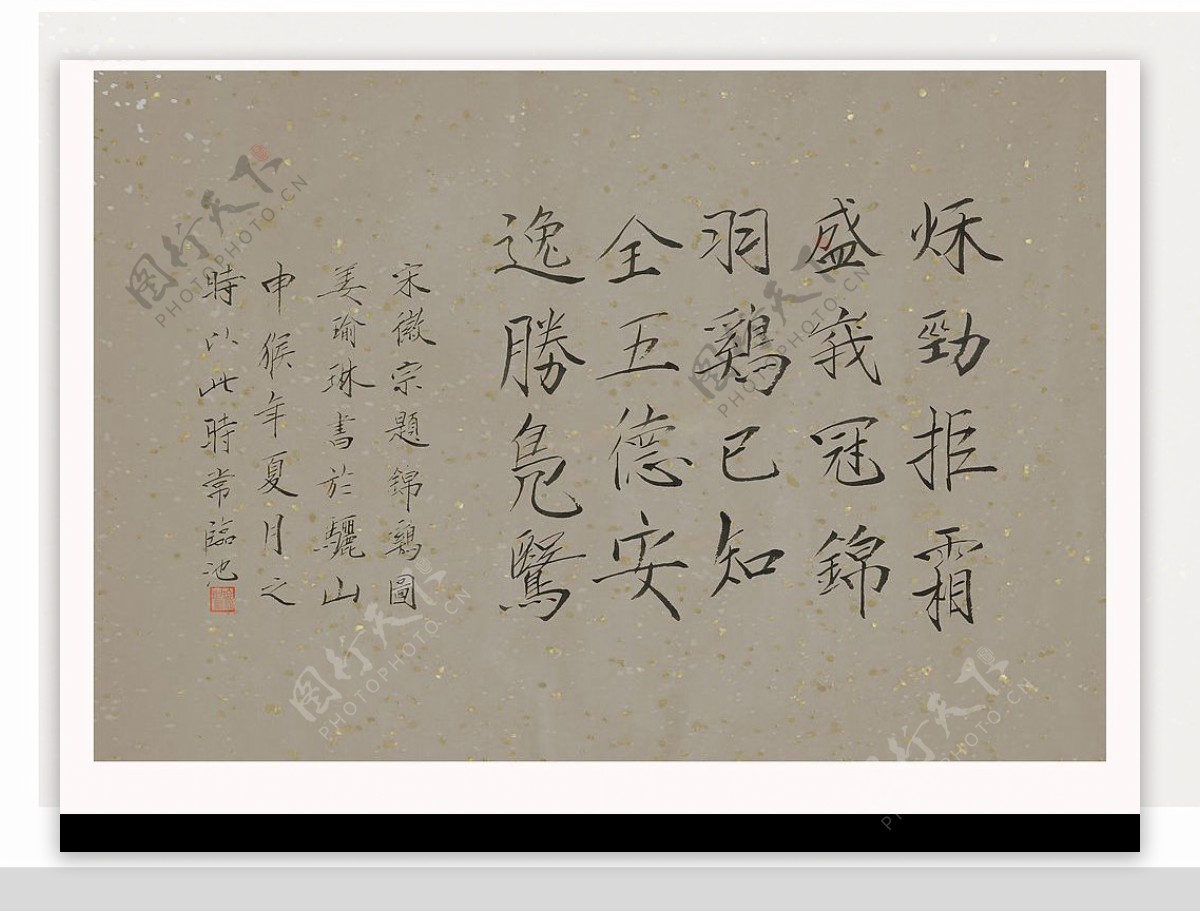 秌勁拒霜
盛峩冠錦
羽鷄已知
全五德安
逸勝鳧鷖
宋徽宗題錦鷄圖
姜瑜琳書於驪山
申猴年夏月之
時以此時常臨池
图行天下
PHOTOPHOTO.CN
图行天下
PHOTOPHOTO.CN
图行天下
PHOTOPHOTO.CN
图行天下
PHOTOPHOTO.CN